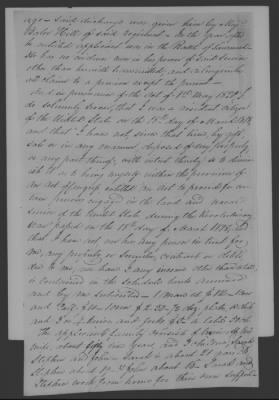 ago - Said discharge was given him by Maj
Hill of said Regiment - In the year after
he enlisted applicant was in the Battle of
He has no evidence now in his power of said service
other than herewith transmitted, and relinquishes
all claims to a pension except the present
And in pursuance of the Act of 1st May 1820, I
do solemnly swear, that I was a resident citizen
of the United States on the 18th day of March 1818,
and that I have not since that time, by gift,
sale or in any manner, disposed of my property
or any part thereof, with intent thereby so to dimin-
ish it as to bring myself within the provisions of
An Act of Congress entitled "An Act to provide for cer-
tain persons engaged in the land and naval
service of the United States during the Revolutionary
War" passed on the 18th day of March 1818, and
that I have not nor has any person in trust for
me, any property or securities, contracts or debts,
due to me, nor have I any income other than what
is contained in the schedule hereto annexed
and by me subscribed -
The applicant's family consists of
wife, about fifty two years and 3 children, Sarah
Stephen and John - Sarah is about 21 years old
Stephen about 19 & John about 16 -
Stephen work from home for their own support